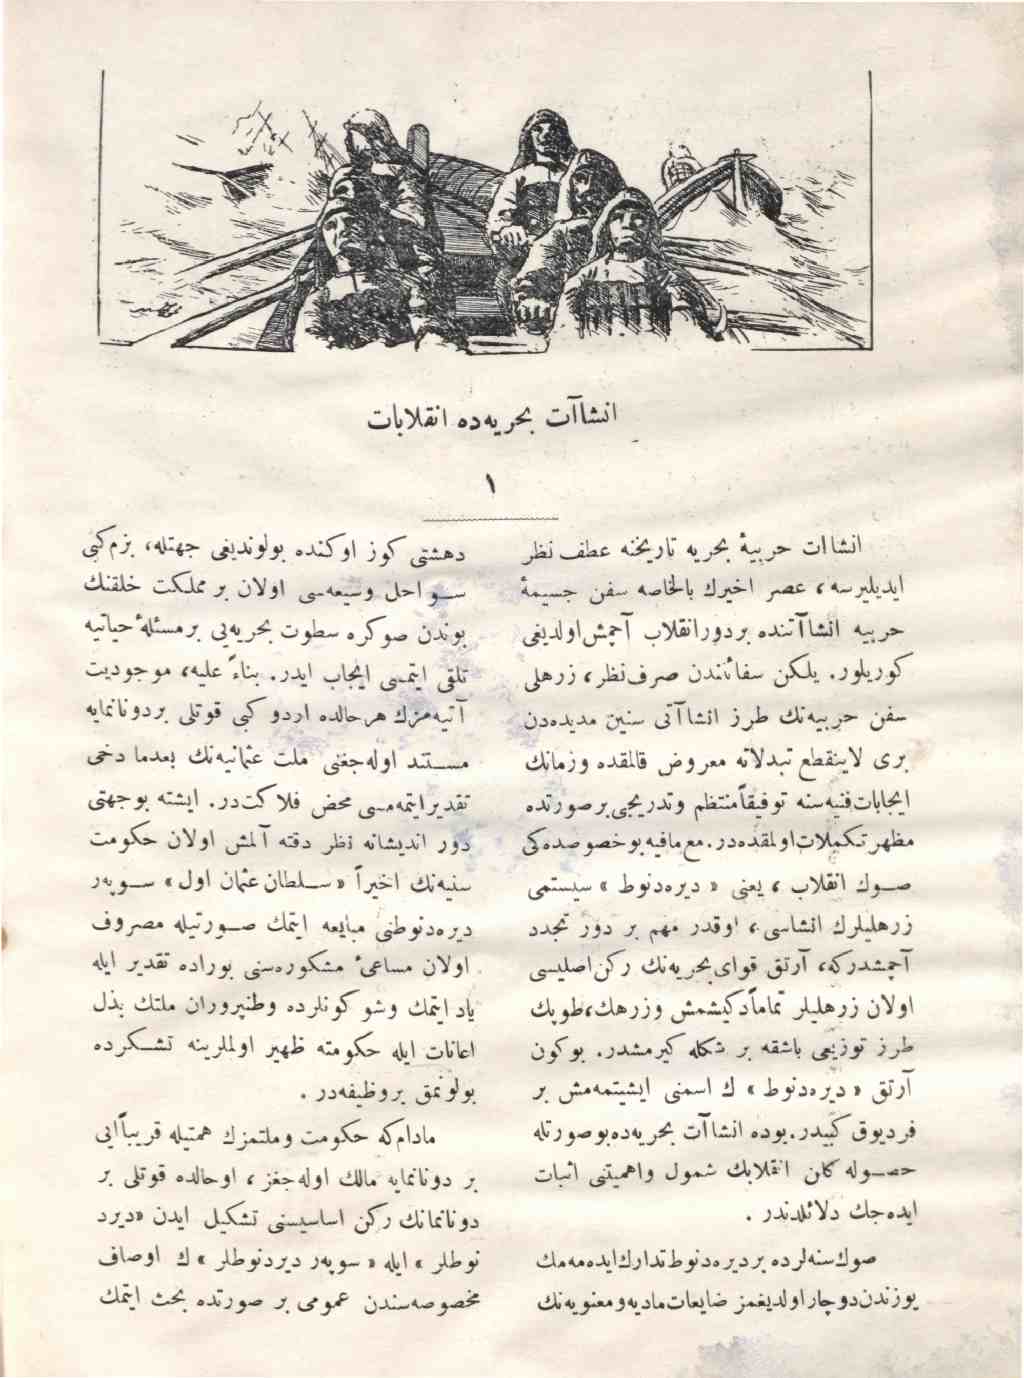 انشاآت بحریه‌ده انقلابات
١
انشاات حربیهٔ بحریه تاریخنه عطف نظر
ایدیلیرسه، عصر اخیرك بالخاصه سفن جسیمهٔ
حربیه انشاآتنده بردور انقلاب آچمش اولدیغی
كوریلور. یلكن سفائنندن صرف نظر، زرهلی
سفن حربیه‌نك طرز انشاآتی سنین مدیده‌دن
بری لاینقطع تبدلاته معروض قالمقده وزمانك
ایجابات فنیه‌سنه توفیقاً منتظم وتدریجی برصورتده
مظهر تكملات اولمقده‌در. مع‌مافیه بوخصوصده‌كی
صوك انقلاب، یعنی «دیره‌دنوط» سیستمی
زرهلیلرك انشاسی، اوقدر مهم بر دور تجدد
آچمشدركه، آرتق قوای بحریه‌نك ركن اصلیسی
اولان زرهلیلر تماماً دكیشمش وزرهك، طوپك
طرز توزیعی باشقه بر شكله كیرمشدر. بوكون
آرتق «دیره‌دنوط» ك اسمنی ایشیتمه‌مش بر
فرد یوق كبیدر. بوده انشاآت بحریه‌ده بوصورتله
حصوله كلن انقلابك شمول واهمیتنی اثبات
ایده‌جك دلائلدندر.
صوك سنه‌لرده بردیره‌دنوط تدارك ایده‌مه‌مك
یوزندن دوچار اولدیغمز ضایعات مادیه ومعنویه‌نك
دهشتی كوز اوكنده بولوندیغی جهتله، بزم كبی
سواحل وسیعه‌سی اولان بر مملكت خلقنك
بوندن صوكره سطوت بحریه‌یی برمسئلهٔ حیاتیه
تلقی ایتمسی ایجاب ایدر. بناءً علیه، موجودیت
آتیه‌مزك هرحالده اردو كبی قوتلی بردونانمایه
مستند اوله‌جغنی ملت عثمانیه‌نك بعدما دخی
تقدیر ایتمه‌مسی محض فلاكت‌در. ایشته بوجهتی
دور اندیشانه نظر دقته آلمش اولان حكومت
سنیه‌نك اخیراً «سلطان عثمان اول» سوپه‌ر
دیره‌دنوطنی مبایعه ایتمك صورتیله مصروف
اولان مساعیٔ مشكوره‌سنی بوراده تقدیر ایله
یاد ایتمك وشو كونلرده وطنپروران ملتك بذل
اعانات ایله حكومته ظهیر اولملرینه تشكرده
بولونمق بروظیفه‌در.
مادام‌كه حكومت وملتمزك همتیله قریباً ایی
بر دونانمایه مالك اوله‌جغز، اوحالده قوتلی بر
دونانمانك ركن اساسیسنی تشكیل ایدن «دیرد
نوطلر» ایله «سوپه‌ر دیردنوطلر» ك اوصاف
مخصوصه‌سندن عمومی بر صورتده بحث ایتمك